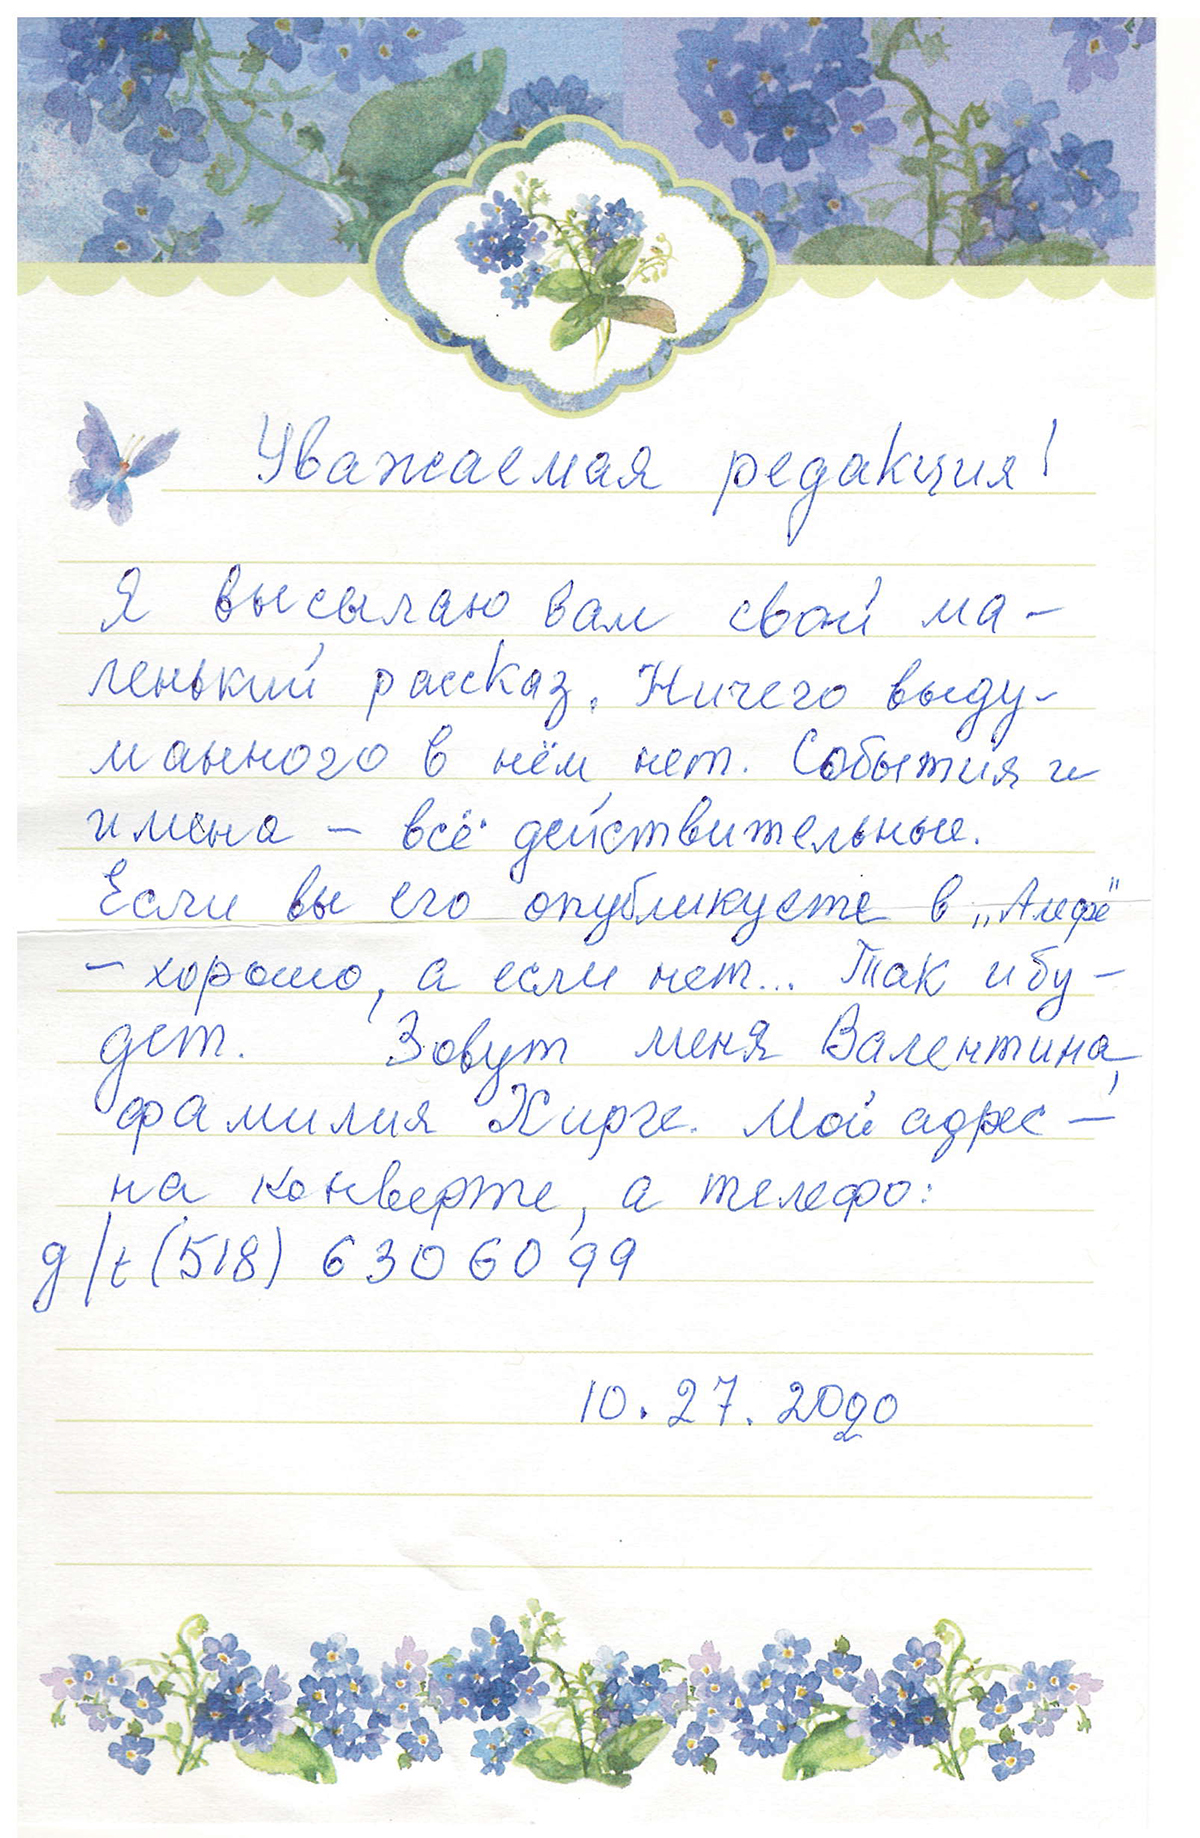 Уважаемая редакция!
Я высылаю вам свой ма-
ленький рассказ. Ничего выду-
манного в нём нет. События и
имена - всё действительные.
Если вы его опубликуете в „Алефе"
- хорошо, а если нет... Так и бу-
дет. Зовут меня Валентина,
фамилия Кирге. Мой адрес -
на конверте, а телефо:
д/t (518) 630 60 99
10. 27. 2020